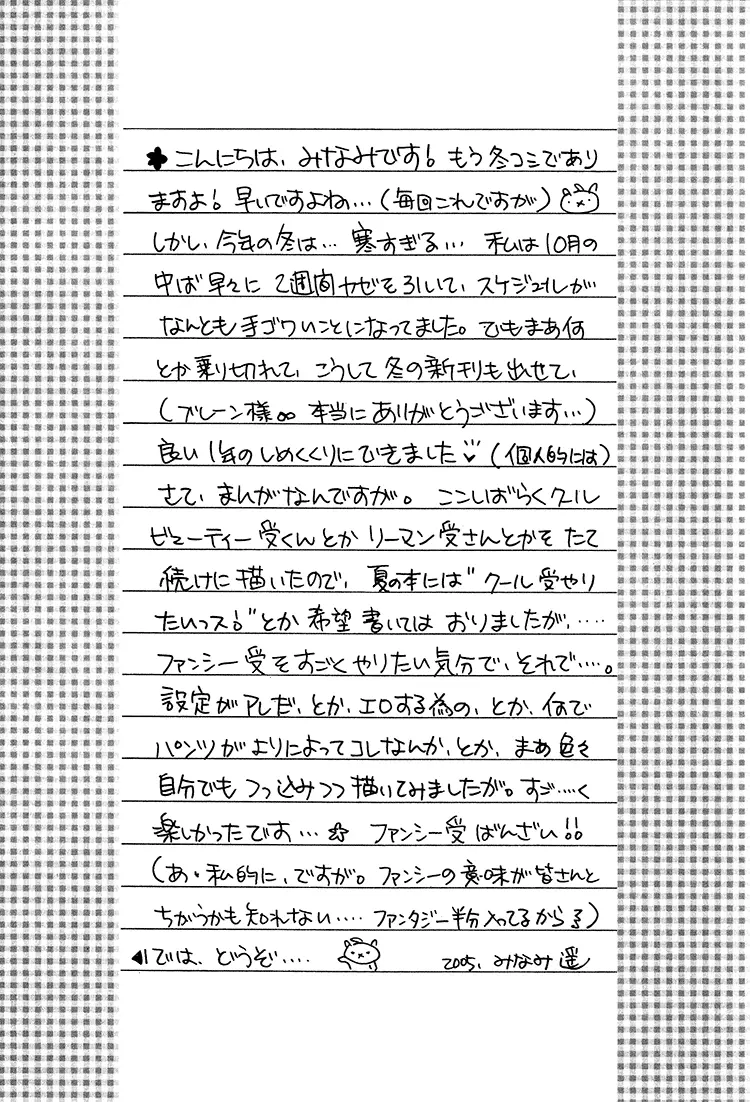 こんにちは、みなみです! もう冬コミであり
ますよ! 早いですよね…(毎回これですが)
しかし、今年の冬は… 寒すぎる… 私は10月の
中ば早々に 2週間カゼを引いて、スケジュールが
なんとも手ゴワいことになってました。でもまあ何
とか乗り切れて、こうして冬の新刊も出せて、
(ブレーン様∞ 本当にありがとうございます…)
良い1年のしめくくりにできました♡(個人的には)
さて、まんがなんですが。 ここしばらくクール
ビューティー受くんとか リーマン受さんとかを たて
続けに描いたので、夏の本には"クール受やり
たいっス!"とか希望書いてはおりましたが、‥‥
ファンシー受をすごくやりたい気分で、それで‥‥。
設定がアレだ、とか、エロする為の、とか、何で
パンツがよりによってコレなんか、とか、まあ色々
自分でもつっ込みつつ描いてみましたが。すご‥‥く
楽しかったです…☆ ファンシー受ばんざい!!
(あ・私的に、ですが。ファンシーの意味が皆さんと
ちがうかも知れない‥‥ ファンタジー半分入ってるからる)
◀では、どうぞ‥‥ 2005. みなみ遥